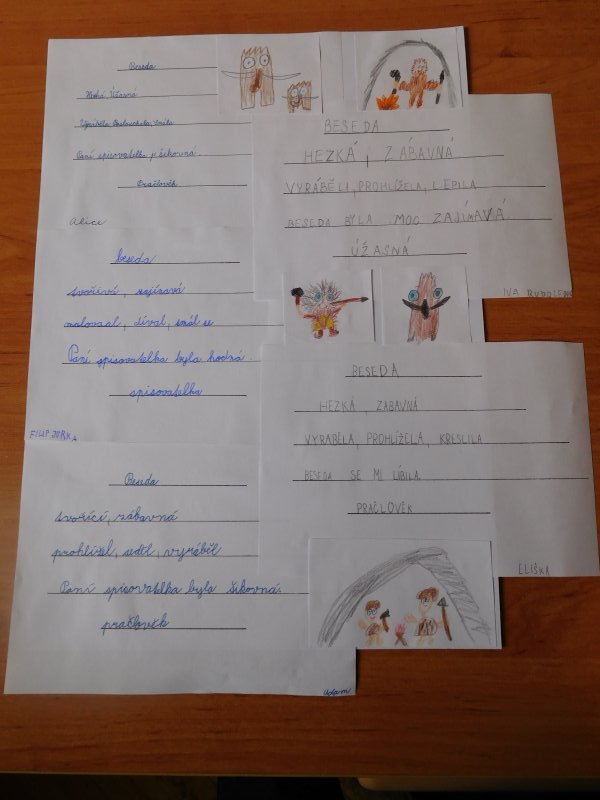 Beseda
Hezká, Úžasná
Vyráběla Poslouchala Smála
Paní spisovatelka je šikovná.
Pračlověk
Alice
BESEDA
HEZKÁ, ZÁBAVNÁ
VYRÁBĚLI, PROHLÍŽELA, LEPILA
BESEDA BYLA MOC ZAJÍMAVÁ.
ÚŽASNÁ
IVA
beseda
tvořivá, zajímavá
maloval, díval, smál se
Paní spisovatelka byla hodná
spisovatelka
FILIP JURKA
BESEDA
HEZKÁ ZÁBAVNÁ
VYRÁBĚLA, PROHLÍŽELA, KRESLILA
BESEDA SE MI LÍBILA.
PRAČLOVĚK
ELIŠKA
Beseda
tvořící, zábavná
prohlížel, seděl, vyráběl
Paní spisovatelka byla šikovná.
pračlověk
Adam